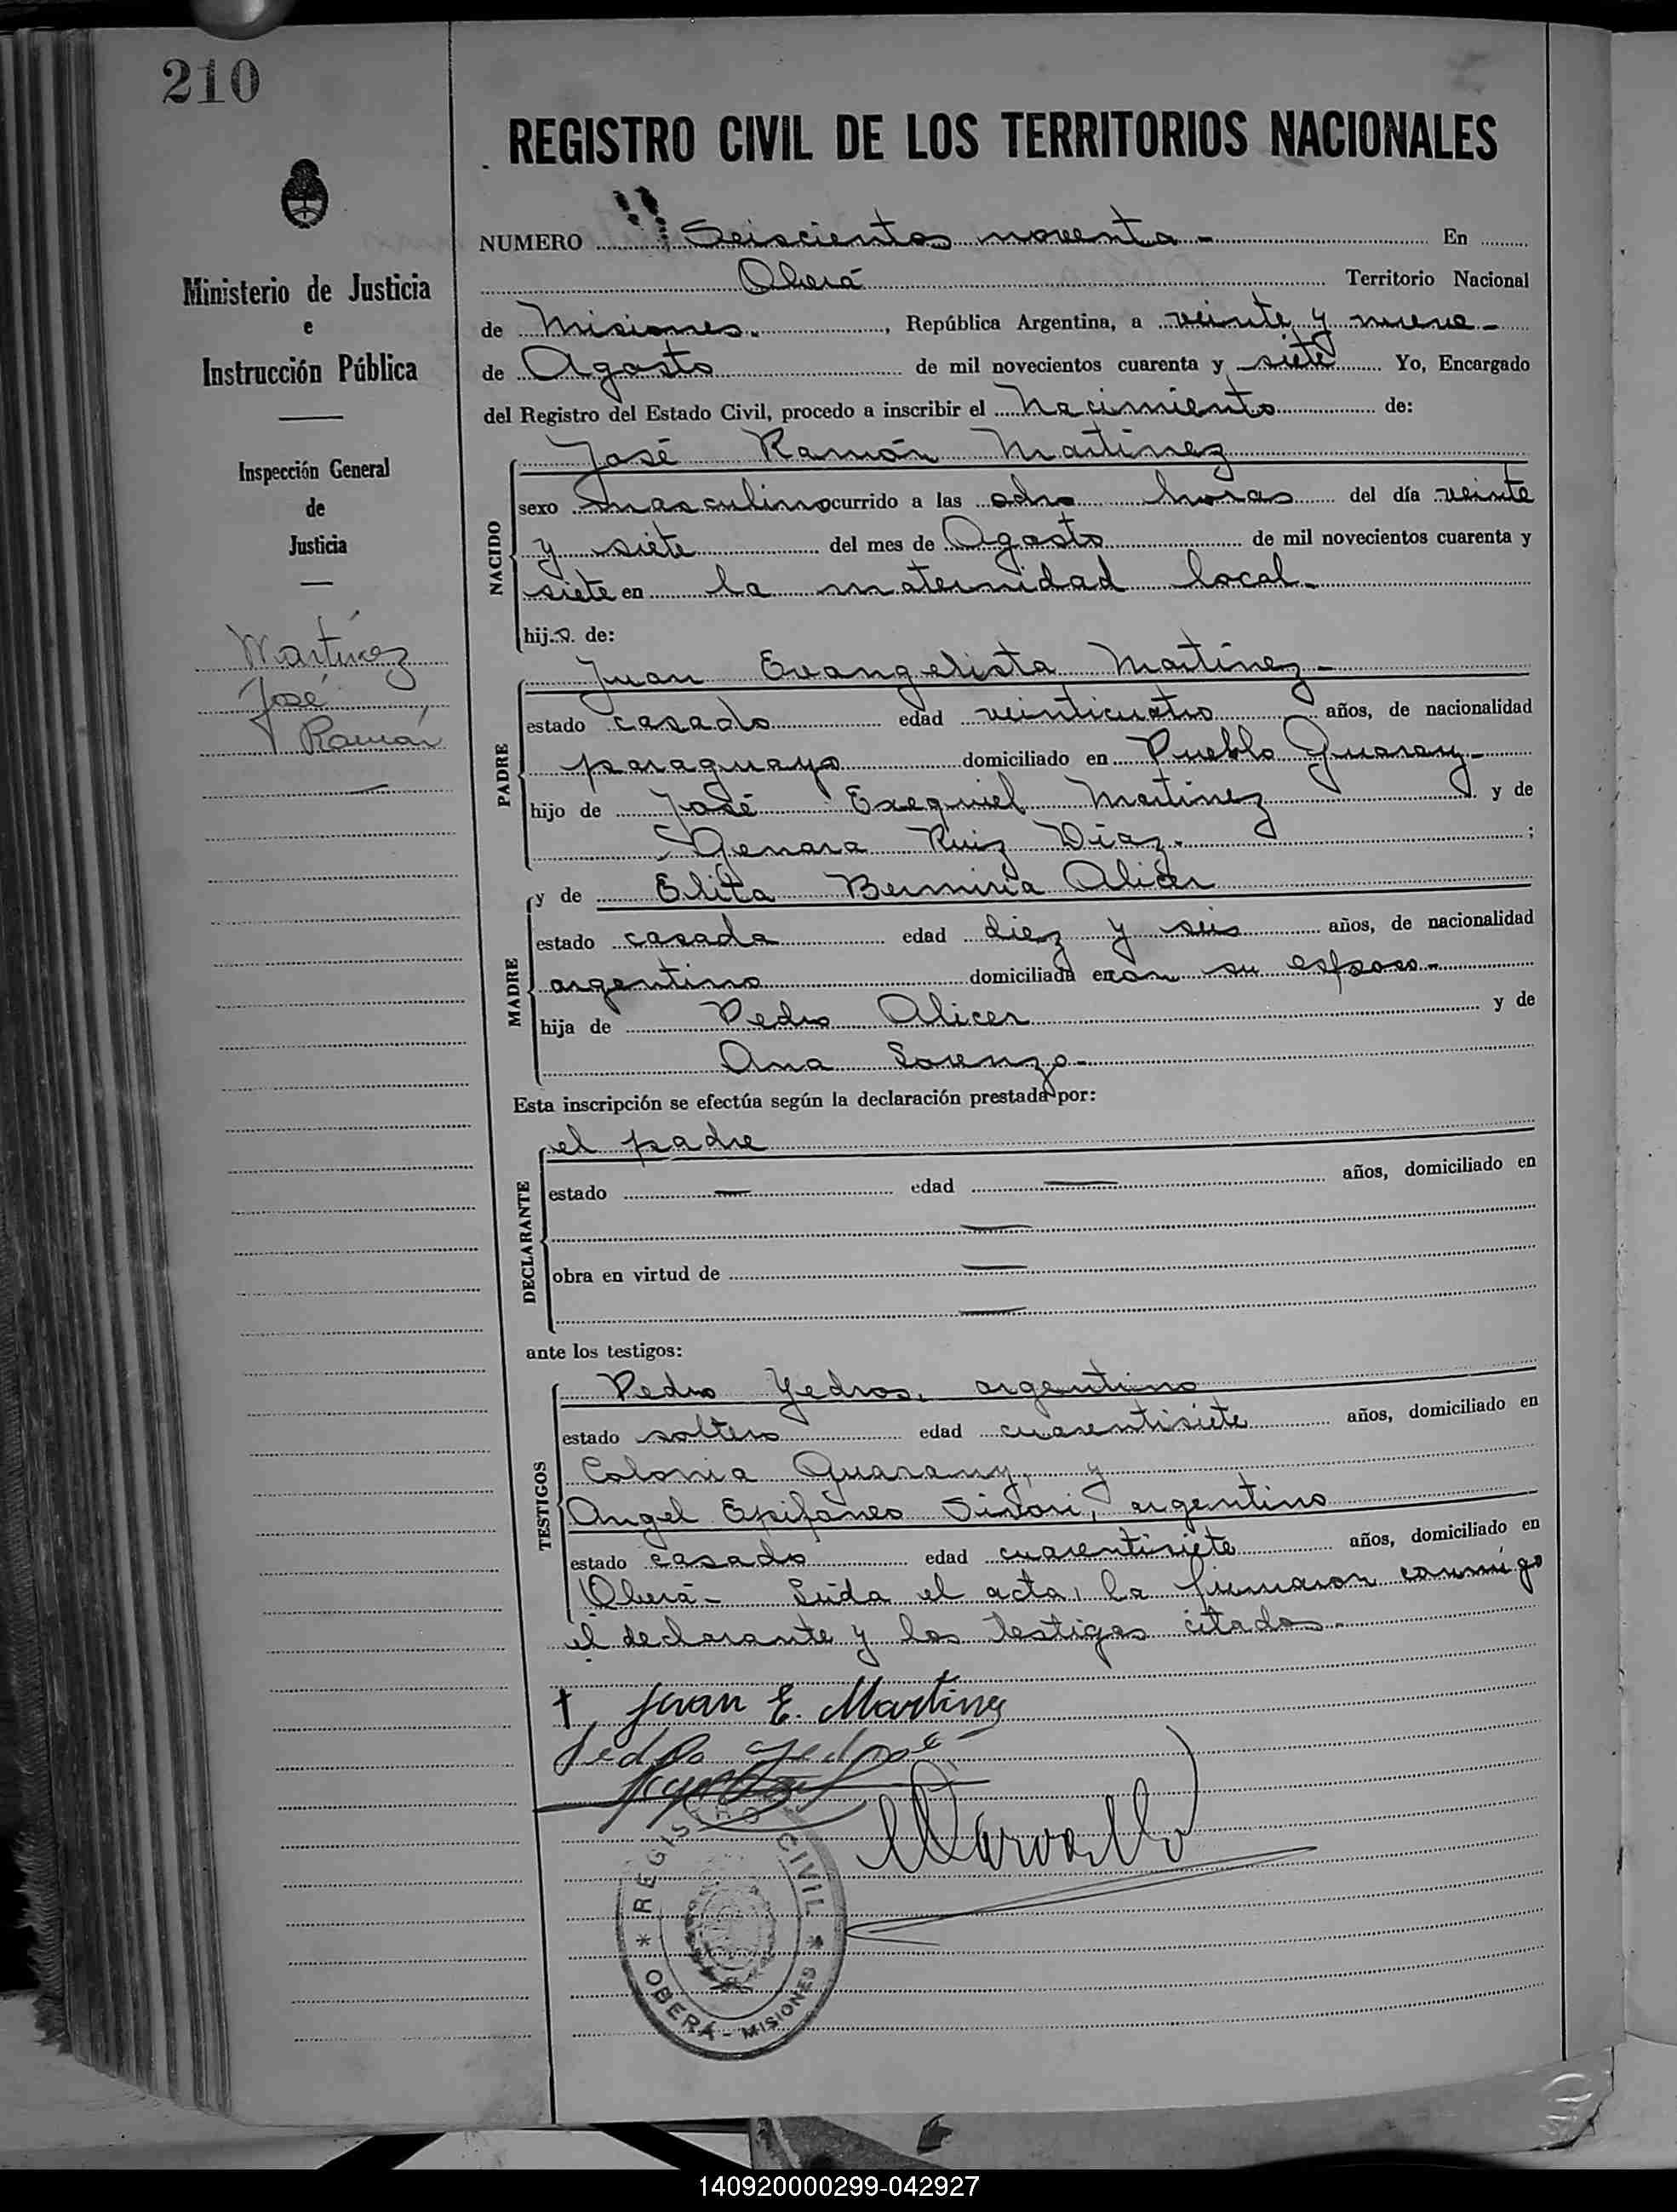 210
REGISTRO CIVIL DE LOS TERRITORIOS NACIONALES
NUMERO Seiscientos noventa - En
Oberá Territorio Nacional
de Misiones. , República Argentina, a veinte y nueve -
de Agosto de mil novecientos cuarenta y siete Yo, Encargado
del Registro del Estado Civil, procedo a inscribir el Nacimiento de:
Ministerio de Justicia
e
Instrucción Pública
Inspección General
de
Justicia
Martínez
José
Ramón
NACIDO
José Ramón Martínez
sexo masculino ocurrido a las ocho horas del día veinte
y siete del mes de Agosto de mil novecientos cuarenta y
siete en la maternidad local -
hijo de:
PADRE
Juan Evangelista Martínez -
estado casado edad veinticuatro años, de nacionalidad
paraguayo domiciliado en Pueblo Guarany -
hijo de José Exequiel Martínez y de
Genara Ruiz Díaz. ;
MADRE
y de Elita Alicer
estado casada edad diez y seis años, de nacionalidad
argentina domiciliada en con su esposo -
hija de Pedro Alicer y de
Ana Lorenzo -
Esta inscripción se efectúa según la declaración prestada por:
DECLARANTE
el padre
estado — edad — años, domiciliado en
—
obra en virtud de —
—
ante los testigos:
TESTIGOS
Pedro Yedros, argentino
estado soltero edad cuarentisiete años, domiciliado en
Colonia Guarany, y
Angel Epifaneo argentino
estado casado edad cuarentisiete años, domiciliado en
Oberá - Leída el acta, la firmaron conmigo
el declarante y los testigos citados -
Juan E. Martinez
Pedro Yedros
REGISTRO CIVIL
* OBERÁ - MISIONES *
140920000299-042927